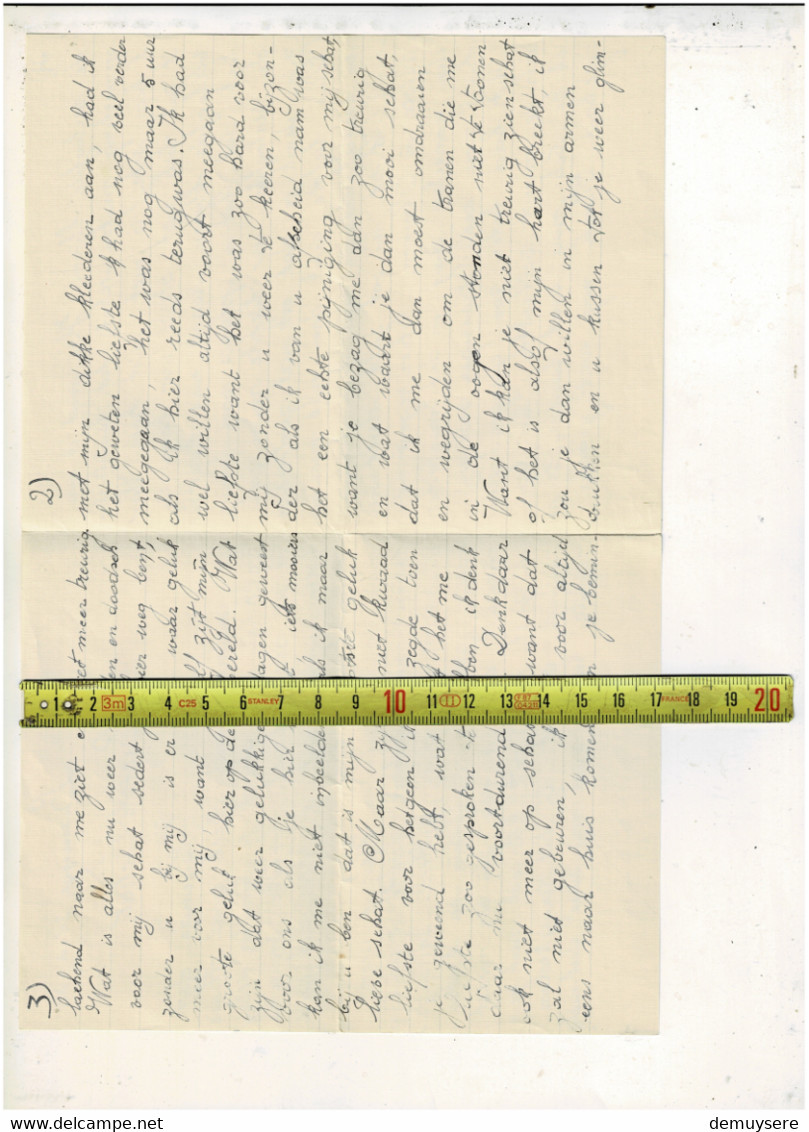 2)
met mijn dikke kleederen aan, had ik
het geweten liefste ik had nog veel verder
meegegaan, het was nog maar 5 uur
als ik hier reeds terug was. Ik had
wel willen altijd voort meegaan
liefste want het was zoo hard voor
mij zonder u weer te keeren, bizon-
der als ik van u afscheid nam was
het een echte pijniging voor mij schat,
want je bezag me dan zoo treurig
en wat waart je dan mooi schat,
dat ik me dan moest omdraaien
en wegrijden om de tranen die me
in de oogen stonden niet te toonen
Want ik kan je niet treurig zien schat
of het is alsof mijn hart breekt, ik
zou je dan willen in mijn armen
drukken en u kussen tot je weer glim-
3)
lachend naar me ziet niet meer treurig.
Wat is alles nu weer en doodsch
voor mij schat sedert hier weg bent,
zonder u bij mij is er waar geluk
meer voor mij, want zijt mijn
groote geluk hier op de wereld. Wat
zijn dat weer gelukkige dagen geweest
voor ons als je hier iets mooiers
kan ik me niet inbeelden als ik maar
bij u ben dat is mijn geluk
lieve schat. Maar zij niet kwaad
liefste voor hetgeen ik zegde toen
je geweend hebt, wat het me
Liefste zoo gesproken te hebben ik denk
daar nu voortdurend Denk daar
ook niet meer op schat want dat
zal niet gebeuren, ik voor altijd
eens naar huis komen je bemin-
1 2 3m 3 4 C25 5 6 STANLEY 7 8 9 10 11 12 13 14 15 16 17 FRANCE 18 19 20
© demuysere
www.delcampe.net